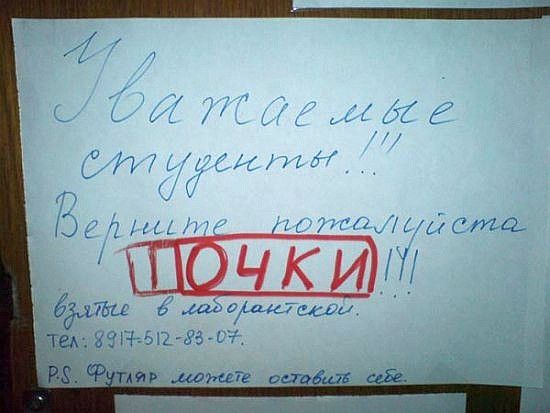 Уважаемые
студенты!!!
Верните пожалуйста
ОЧКИ!!!
взятые в лаборантской.
тел: 8917-512-83-07.
P.S. Футляр можете оставить себе.